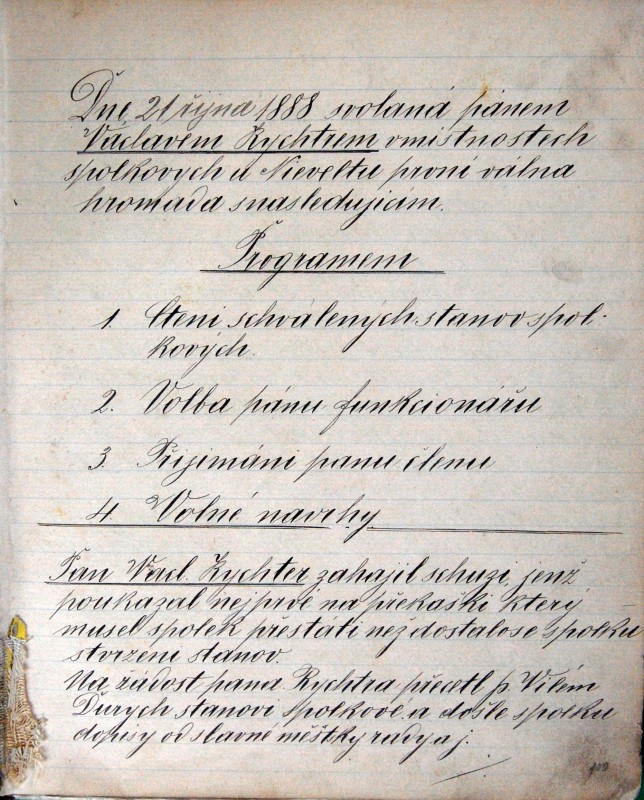 Dne 21 října 1888 svolaná pánem
Václavem Rychtrem v místnostech
spolkových u Nieveltu první válná
hromada s nasledujicím.
Programem
1. Čteni schválených stanov spol-
kových.
2. Volba pánu funkcionářu
3. Přijemáni panu členu
4. Volné navrhy
Pan Václ. Rychter zahajil schuzi, jenž
poukázal nejprvé na překaški který
musel spolek přestáti než dostalose spolku
stvrzeni stanov.
Na žádost pana Rychtra přečetl p. Vilém
Ďurych stanovi spolkové a došle spolku
dopisy od slavné měštky rady a j.